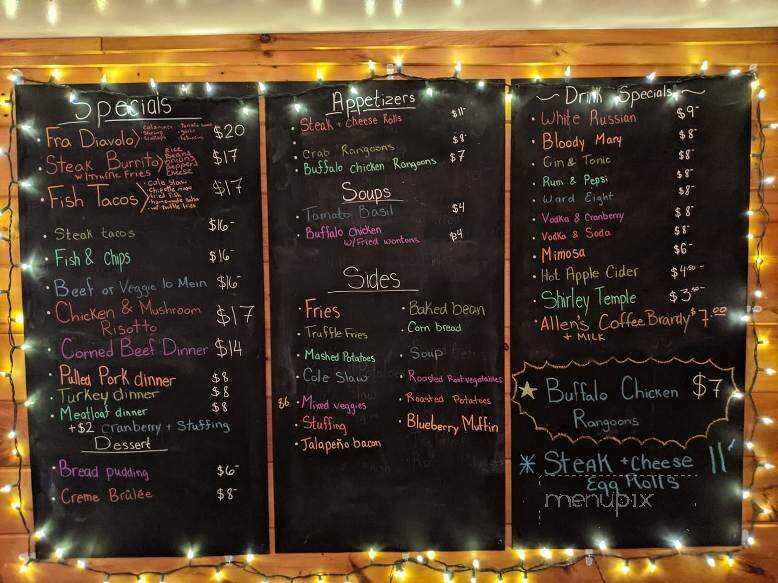 Specials
Fra Diavolo $20
calamari
shrimp
scallops
tomato sauce
garlic
Steak Burrito $17
w/truffle Fries
Rice
Beans
onions
peppers
cheese
Fish Tacos $17
cole slaw
chipotle mayo
fried fish
homemade salsa
w/ truffle fries
Steak tacos $16-
Fish & Chips $16-
Beef or Veggie lo Mein $16-
Chicken & Mushroom $17
Risotto
Corned Beef Dinner $14
Pulled Pork dinner $8
Turkey dinner $8
Meatloaf dinner $8
+$2 cranberry + Stuffing
Dessert
Bread pudding $6-
Creme Brûlée $8-
Appetizers
Steak + Cheese Rolls $11-
Crab Rangoons $8-
Buffalo Chicken Rangoons $7
Soups
Tomato Basil $4
Buffalo Chicken $4
w/Fried wontons
Sides
Fries
Truffle Fries
Mashed Potatoes
Cole Slaw
$6 Mixed veggies
Stuffing
Jalapeño bacon
Baked bean
Corn bread
Soup
Roasted Root vegetables
Roasted Potatoes
Blueberry Muffin
Drink Specials
White Russian $9-
Bloody Mary $8-
Gin & Tonic $8-
Rum & Pepsi $8-
Ward Eight $8-
Vodka & Cranberry $8-
Vodka & Soda $8-
Mimosa $6-
Hot Apple Cider $4.50-
Shirley Temple $3.50-
Allen's Coffee Brandy $7.00
+ MILK
Buffalo Chicken $7
Rangoons
Steak + Cheese 11-
Egg Rolls
menupix